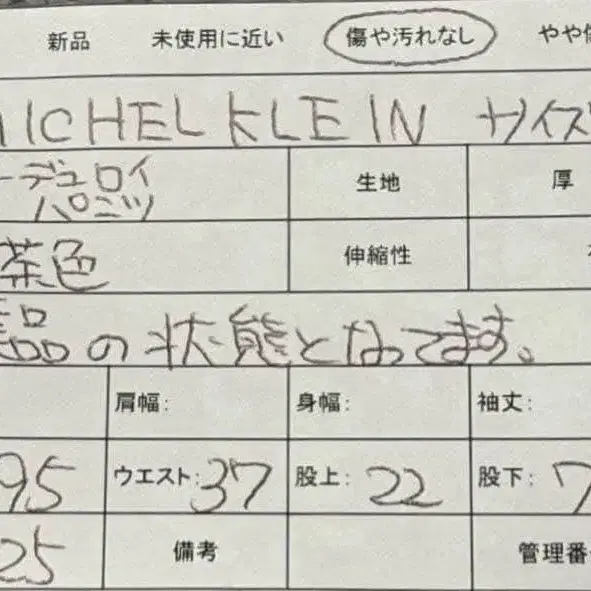 新品 未使用に近い 傷や汚れなし やや傷
MICHEL KLEIN サイズ
ーデュロイ 生地 厚
パンツ
茶色 伸縮性
品の状態となってます。
肩幅: 身幅: 袖丈:
95 ウエスト:37 股上:22 股下:7
25 備考 管理番